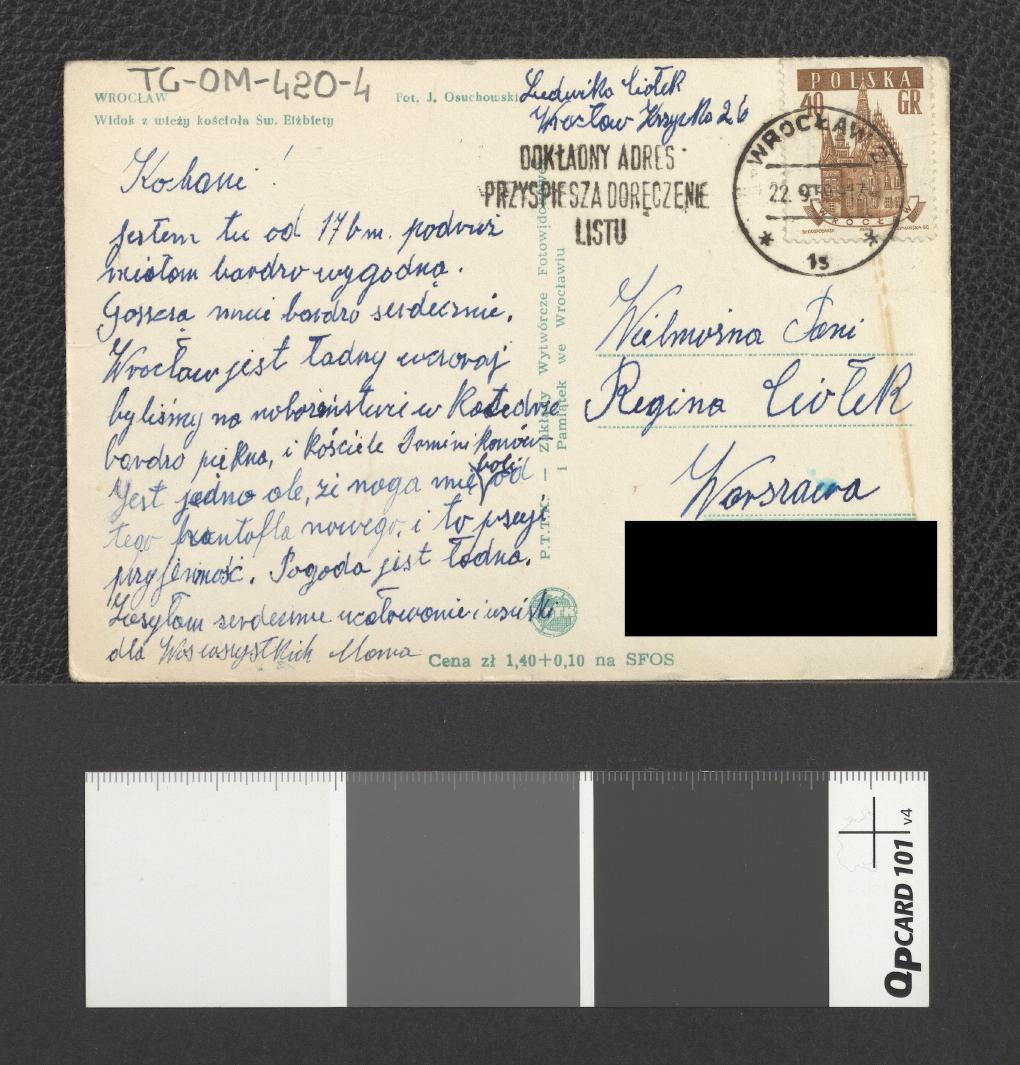 TG-OM-420-4
WROCŁAW
Widok z wieży kościoła Św. Elżbiety
Fot. J. Osuchowski
Ludwika Ciołek
Wrocław Krzycka 26
POLSKA
40 GR
WROCŁAW 2
22.9.59
1s
WROCŁAW
DOKŁADNY ADRES
PRZYSPIESZA DORĘCZENIE
LISTU
Kohani!
Jestem tu od 17 bm. podruż
miałam bardzo wygodną.
Goszczą mnie bardzo serdecznie.
Wrocław jest ładny wczoraj
byliśmy na nabożeństwie w Katedrze
bardzo piękna, i Kościele Dominikanów
Jest jedno ale, że noga mię boli od
tego pantofla nowego, i to psuje
przyjemność. Pogoda jest ładna.
Zasyłam serdeczne ucałowanie i uściski
dla Was wszystkich Mama
P.T.T.K. — Zakłady Wytwórcze Fotowidokowe
i Pamiątek we Wrocławiu
Wielmożna Pani
Regina Ciołek
Warszawa
Cena zł 1,40+0,10 na SFOS
QPCARD 101 v4